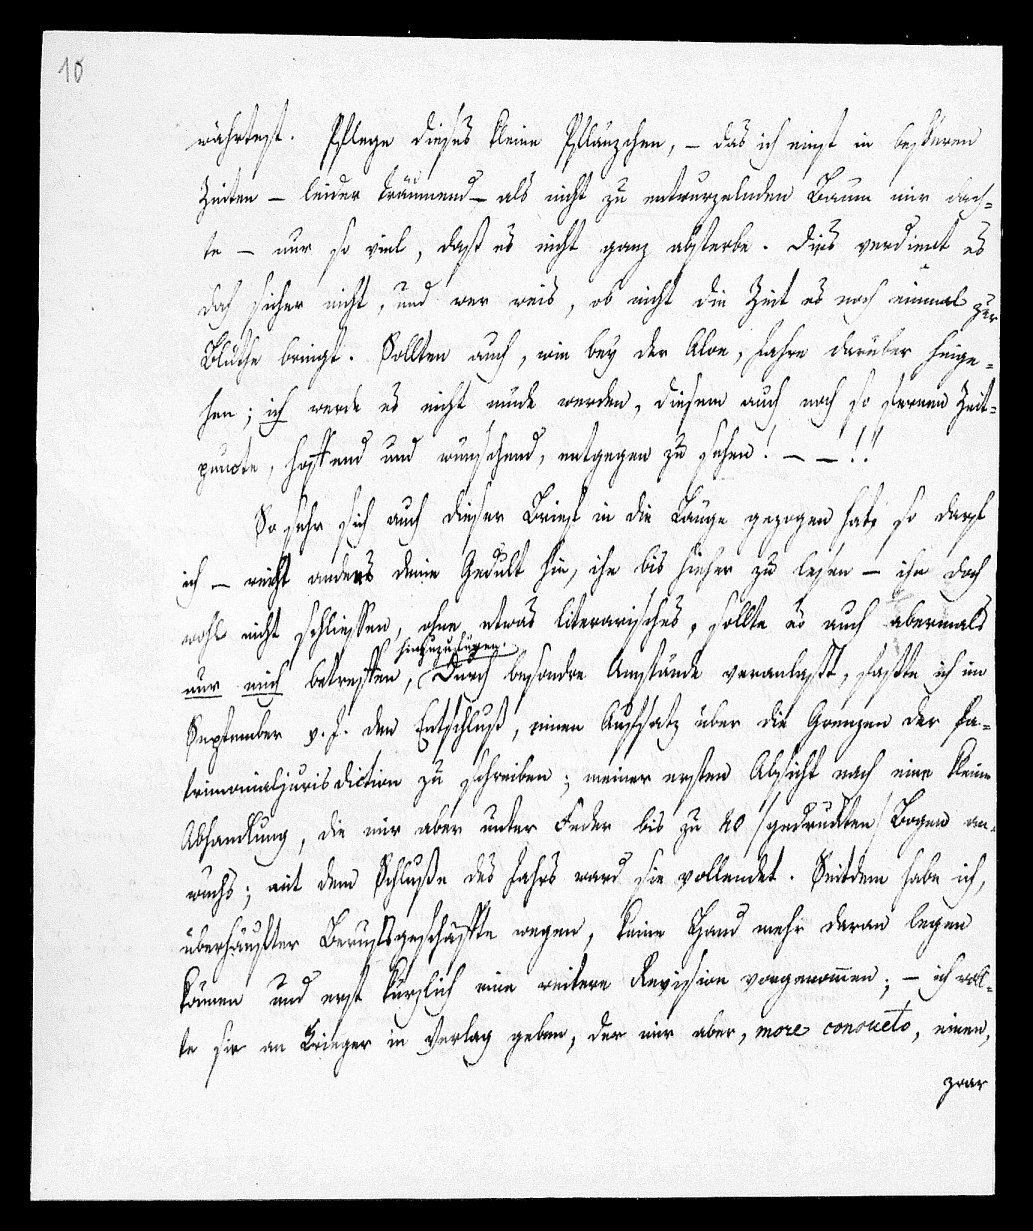 10
währtest. Pflege dieses kleine Pflänzchen, – das ich einst in besseren
Zeiten – leider träumend – als nicht zu entwurzelnden Baum mir dach-
te – nur so viel, daß es nicht ganz absterbe. Dies verdient es
doch sicher nicht, und wer weis, ob nicht die Zeit es noch einmal zur
Blüthe bringt. Sollten auch, wie bey der Aloe, Jahre darüber hinge-
hen; ich werde es nicht müde werden, diesem auch noch so fernen Zeit-
puncte, hoffend und wünschend, entgegen zu sehen! – – !!
So sehr sich auch dieser Brief in die Länge gezogen hat, so darf
ich – reicht anders deine Gedult hin, ihn bis hieher zu lesen – ihn doch
wohl nicht schliessen, ohne etwas literarisches, sollte es auch abermals
hinzuzufügen.
nur mich betreffen, Durch besondre Umstände veranlaßt, faßte ich im
September v. J. den Entschluß, einen Aufsatz über die Grenzen der Pa-
trimonialjurisdiction zu schreiben; meiner ersten Absicht nach eine kleine
Abhandlung, die mir aber unter Feder bis zu 20 /gedruckten/ Bogen an-
wuchs; mit dem Schluße des Jahrs ward sie vollendet. Seitdem habe ich,
überhäufter Berufsgeschäffte wegen, keine Hand mehr daran legen
können und erst kürzlich eine weitere Revision vorgenommen; – ich woll-
te sie an Krieger in Verlag geben, der mir aber, more consueto, einen,
zwar